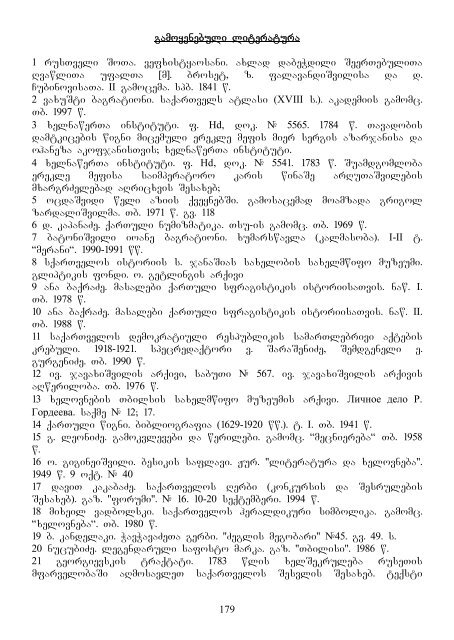 გამოყენებული ლიტერატურა
1 რუსთველი შოთა. ვეფხისტყაოსანი. ახლად დაბეჭდილი შეერთებულითა
ღვაწლითა უფალთა [მ]. ბროსეტ, ზ. ფალავანდიშვილისა და დ.
ჩუბინოვისათა. II გამოცემა. სპბ. 1841 წ.
2 ვახუშტი ბაგრატიონი. საქართველს ატლასი (XVIII ს.). აკადემიის გამომც.
თბ. 1997 წ.
3 ხელნაწერთა ინსტიტუტი. ფ. Hd, დოკ. № 5565. 1784 წ. თავადობის
დამტკიცების წიგნი მიცემული ერეკლე მეფის მიერ სერგის აზარჯანისა და
ოჰანეზა აკოფჯანისთვის; ხელნაწერთა ინსტიტუტი.
4 ხელნაწერთა ინსტიტუტი. ფ. Hd, დოკ. № 5541. 1783 წ. შუამდგომლობა
ერეკლე მეფისა საიმპერატორო კარის წინაშე არღუთაშვილების
მხარგრძელებად აღრიცხვის შესახებ;
5 ოცდაშვიდი წელი აზიის ქვეყნებში. გამოსაცემად მოამზადა გრიგოლ
ზარდალიშვილმა. თბ. 1971 წ. გვ. 118
6 დ. კაპანაძე. ქართული ნუმიზმატიკა. თსუ-ის გამომც. თბ. 1969 წ.
7 ბატონიშვილი იოანე ბაგრატიონი. ხუმარსწავლა (კალმასობა). I-II ტ.
“მერანი“. 1990-1991 წწ.
8 სქართველოს ისტორიის ს. ჯანაშიას სახელობის სახელმწიფო მუზეუმი.
გლიპტიკის ფონდი. ო. გეტლინგის არქივი
9 ანა ბაქრაძე. მასალები ქართული სფრაგისტიკის ისტორიისათვის. ნაწ. I.
თბ. 1978 წ.
10 ანა ბაქრაძე. მასალები ქართული სფრაგისტიკის ისტორიისათვის. ნაწ. II.
თბ. 1988 წ.
11 საქართველოს დემოკრატიული რესპუბლიკის სამართლებრივი აქტების
კრებული. 1918-1921. სპეცრედაქტორი ვ. შარაშენიძე, შემდგენელი ე.
გურგენიძე. თბ. 1990 წ.
12 ივ. ჯავახიშვილის არქივი, საბუთი № 567. ივ. ჯავახიშვილის არქივის
აღწერილობა. თბ. 1976 წ.
13 ხელოვნების თბილსის სახელმწიფო მუზეუმის არქივი. Личное дело Р.
Гордеева. საქმე № 12; 17.
14 ქართული წიგნი. ბიბლიოგრაფია (1629-1920 წწ.). ტ. I. თბ. 1941 წ.
15 გ. ლეონიძე. გამოკვლევები და წერილები. გამომც. “მეცნიერება“ თბ. 1958
წ.
16 ო. გიგინეიშვილი. ბესიკის საფლავი. ჟურ. "ლიტერატურა და ხელოვნება".
1949 წ. 9 ოქტ. № 40
17 დავით კაკაბაძე. საქართველოს ღერბი (კონკურსის და შესრულების
შესახებ). გაზ. "ფორუმი". № 16. 10-20 სექტემბერი. 1994 წ.
18 მიხეილ ვადბოლსკი. საქართველოს ჰერალდიკური სიმბოლიკა. გამომც.
“ხელოვნება“. თბ. 1980 წ.
19 ბ. კანდელაკი. ჭავჭავაძეთა გერბი. "ძეგლის მეგობარი" №45. გვ. 49. ს.
20 ნუცუბიძე. ლეგენდარული საფოსტო მარკა. გაზ. "თბილისი". 1986 წ.
21 გეორგიევსკის ტრაქტატი. 1783 წლის ხელშეკრულება რუსეთის
მფარველობაში აღმოსავლეთ საქართველოს შესვლის შესახებ. ტექსტი
179